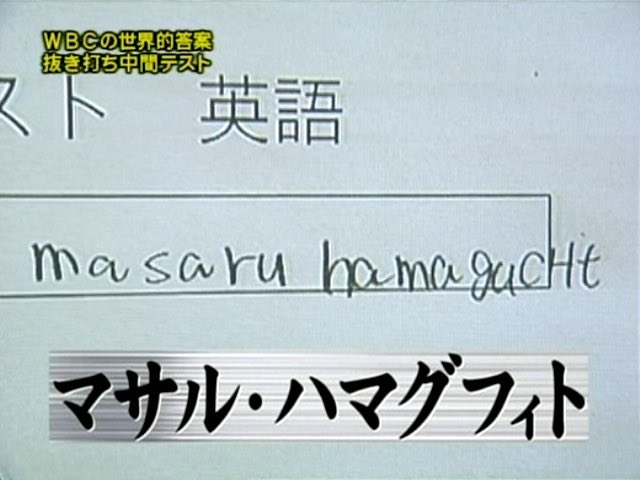 WBCの世界的答案
抜き打ち中間テスト
スト 英語
masaru hamagucHt
マサル・ハマグフィト